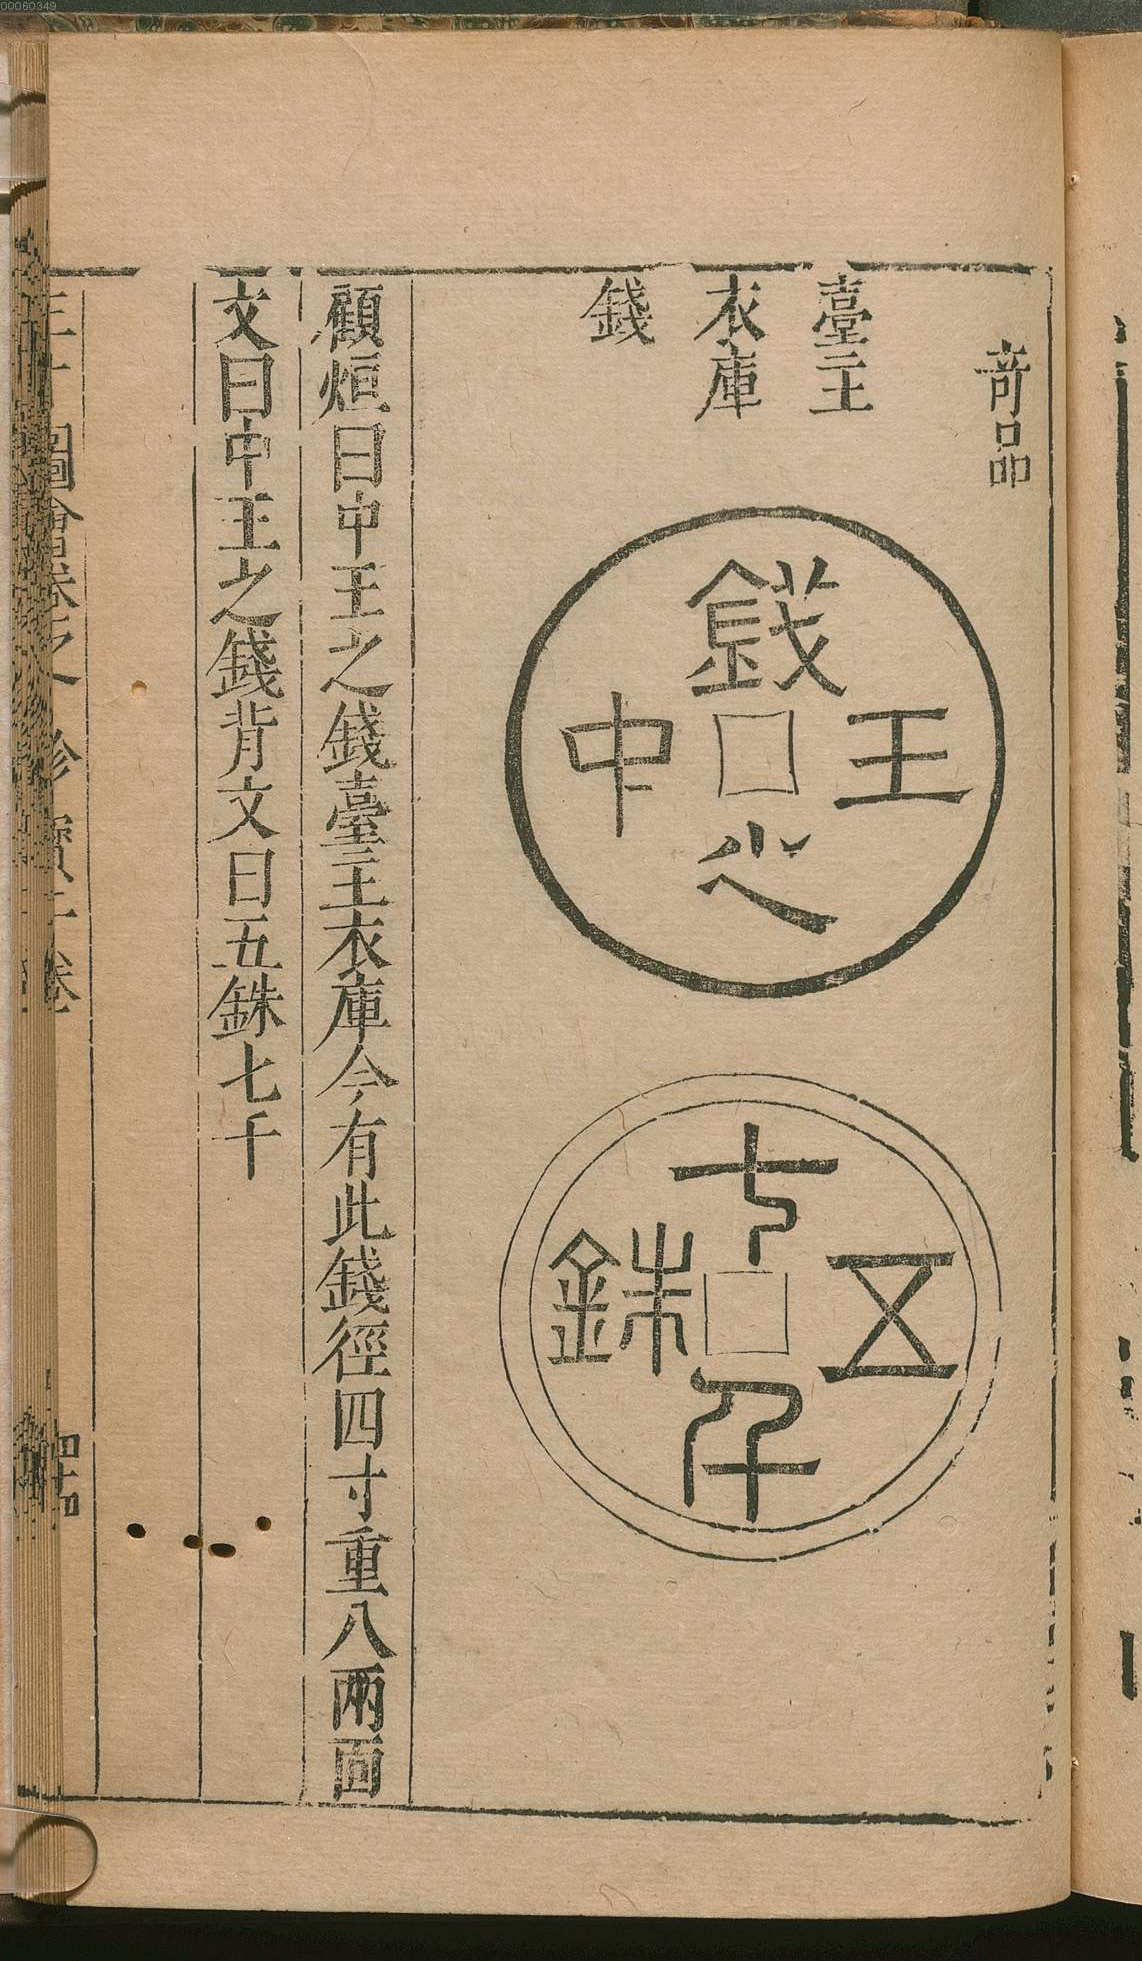 竒品
臺主
衣庫
錢
錢
王
中
之
七
五
銖
千
顧烜曰中王之錢臺主衣庫今有此錢徑四寸重八兩面
文曰中王之錢背文曰五銖七千
圖會
00060349